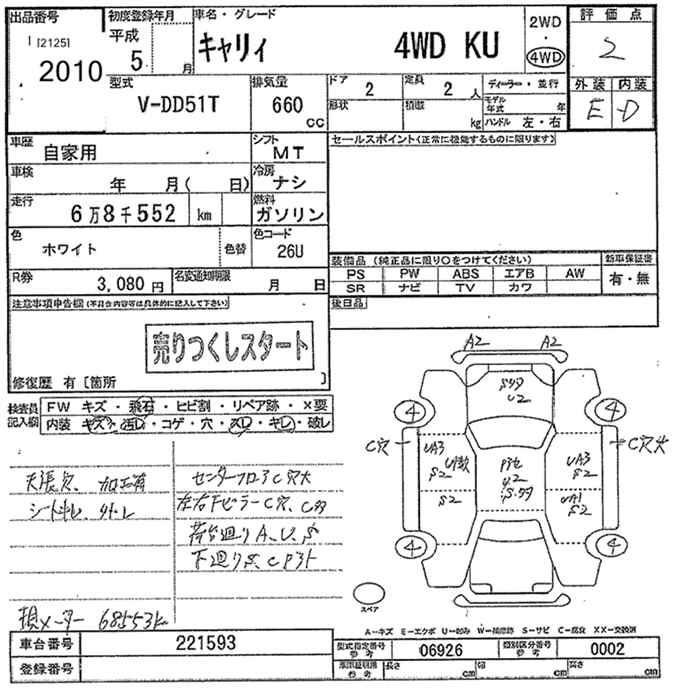 出品番号 初度登録年月 車名・グレード 2WD 評価点
[21251 平成 キャリィ 4WD KU ・ 2
2010 5 月 4WD
型式 排気量 ドア 2 定員 2 人 ディーラー・並行 外装 内装
V-DD51T 660 cc 形状 積載 kg モデル年式 年 E D
ハンドル 左・右
車歴 自家用 シフト MT セールスポイント(正常に機能するものに限ります)
車検 年 月( 日) 冷房 ナシ
走行 6万8千552 km 燃料 ガソリン
色 ホワイト 色替 色コード 26U
装備品 (純正品に限り○をつけてください) 新車保証書
R券 3,080円 名変通知期限 月 日 PS PW ABS エアB AW 有・無
SR ナビ TV カワ
注意事項申告欄(不具合内容等は具体的に記入して下さい) 後日品
売りつくしスタート
修復歴 有[箇所 ]
検査員記入欄 FW キズ・飛石・ヒビ割・リペア跡・×要
内装 キズ・汚レ・コゲ・穴・スレ・キレ・破レ
A2 A2
U2
4 4
C穴 UA3 S2 UA3 S2 C穴大
S2 S2
4 4
天張穴、加工有 センターフロアC穴大
シートキレ
荷台廻りA、U、S
下廻りS、C
現メーター 68553K
スペア
A-キズ E-エクボ U-凹み W-補修跡 S-サビ C-腐食 XX-交換済
車台番号 221593 型式指定番号 参考 06926 類別区分番号 参考 0002
登録番号 長さ cm 幅 cm 高さ cm